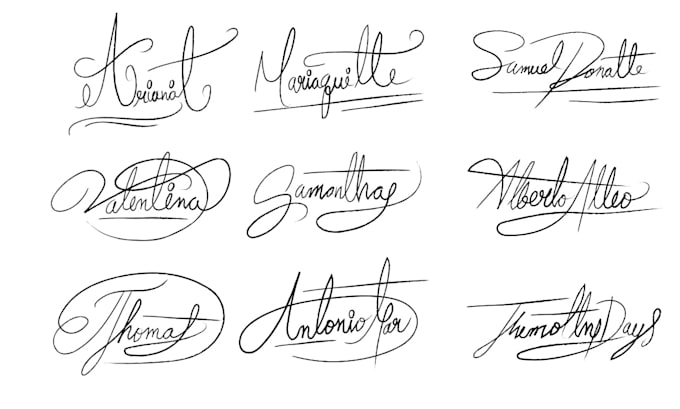 Arianat
Mariaquitte
Samuel Donatte
Valentina
Samanthas
Alberto Alleo
Thomas
Antonio Mar
Days